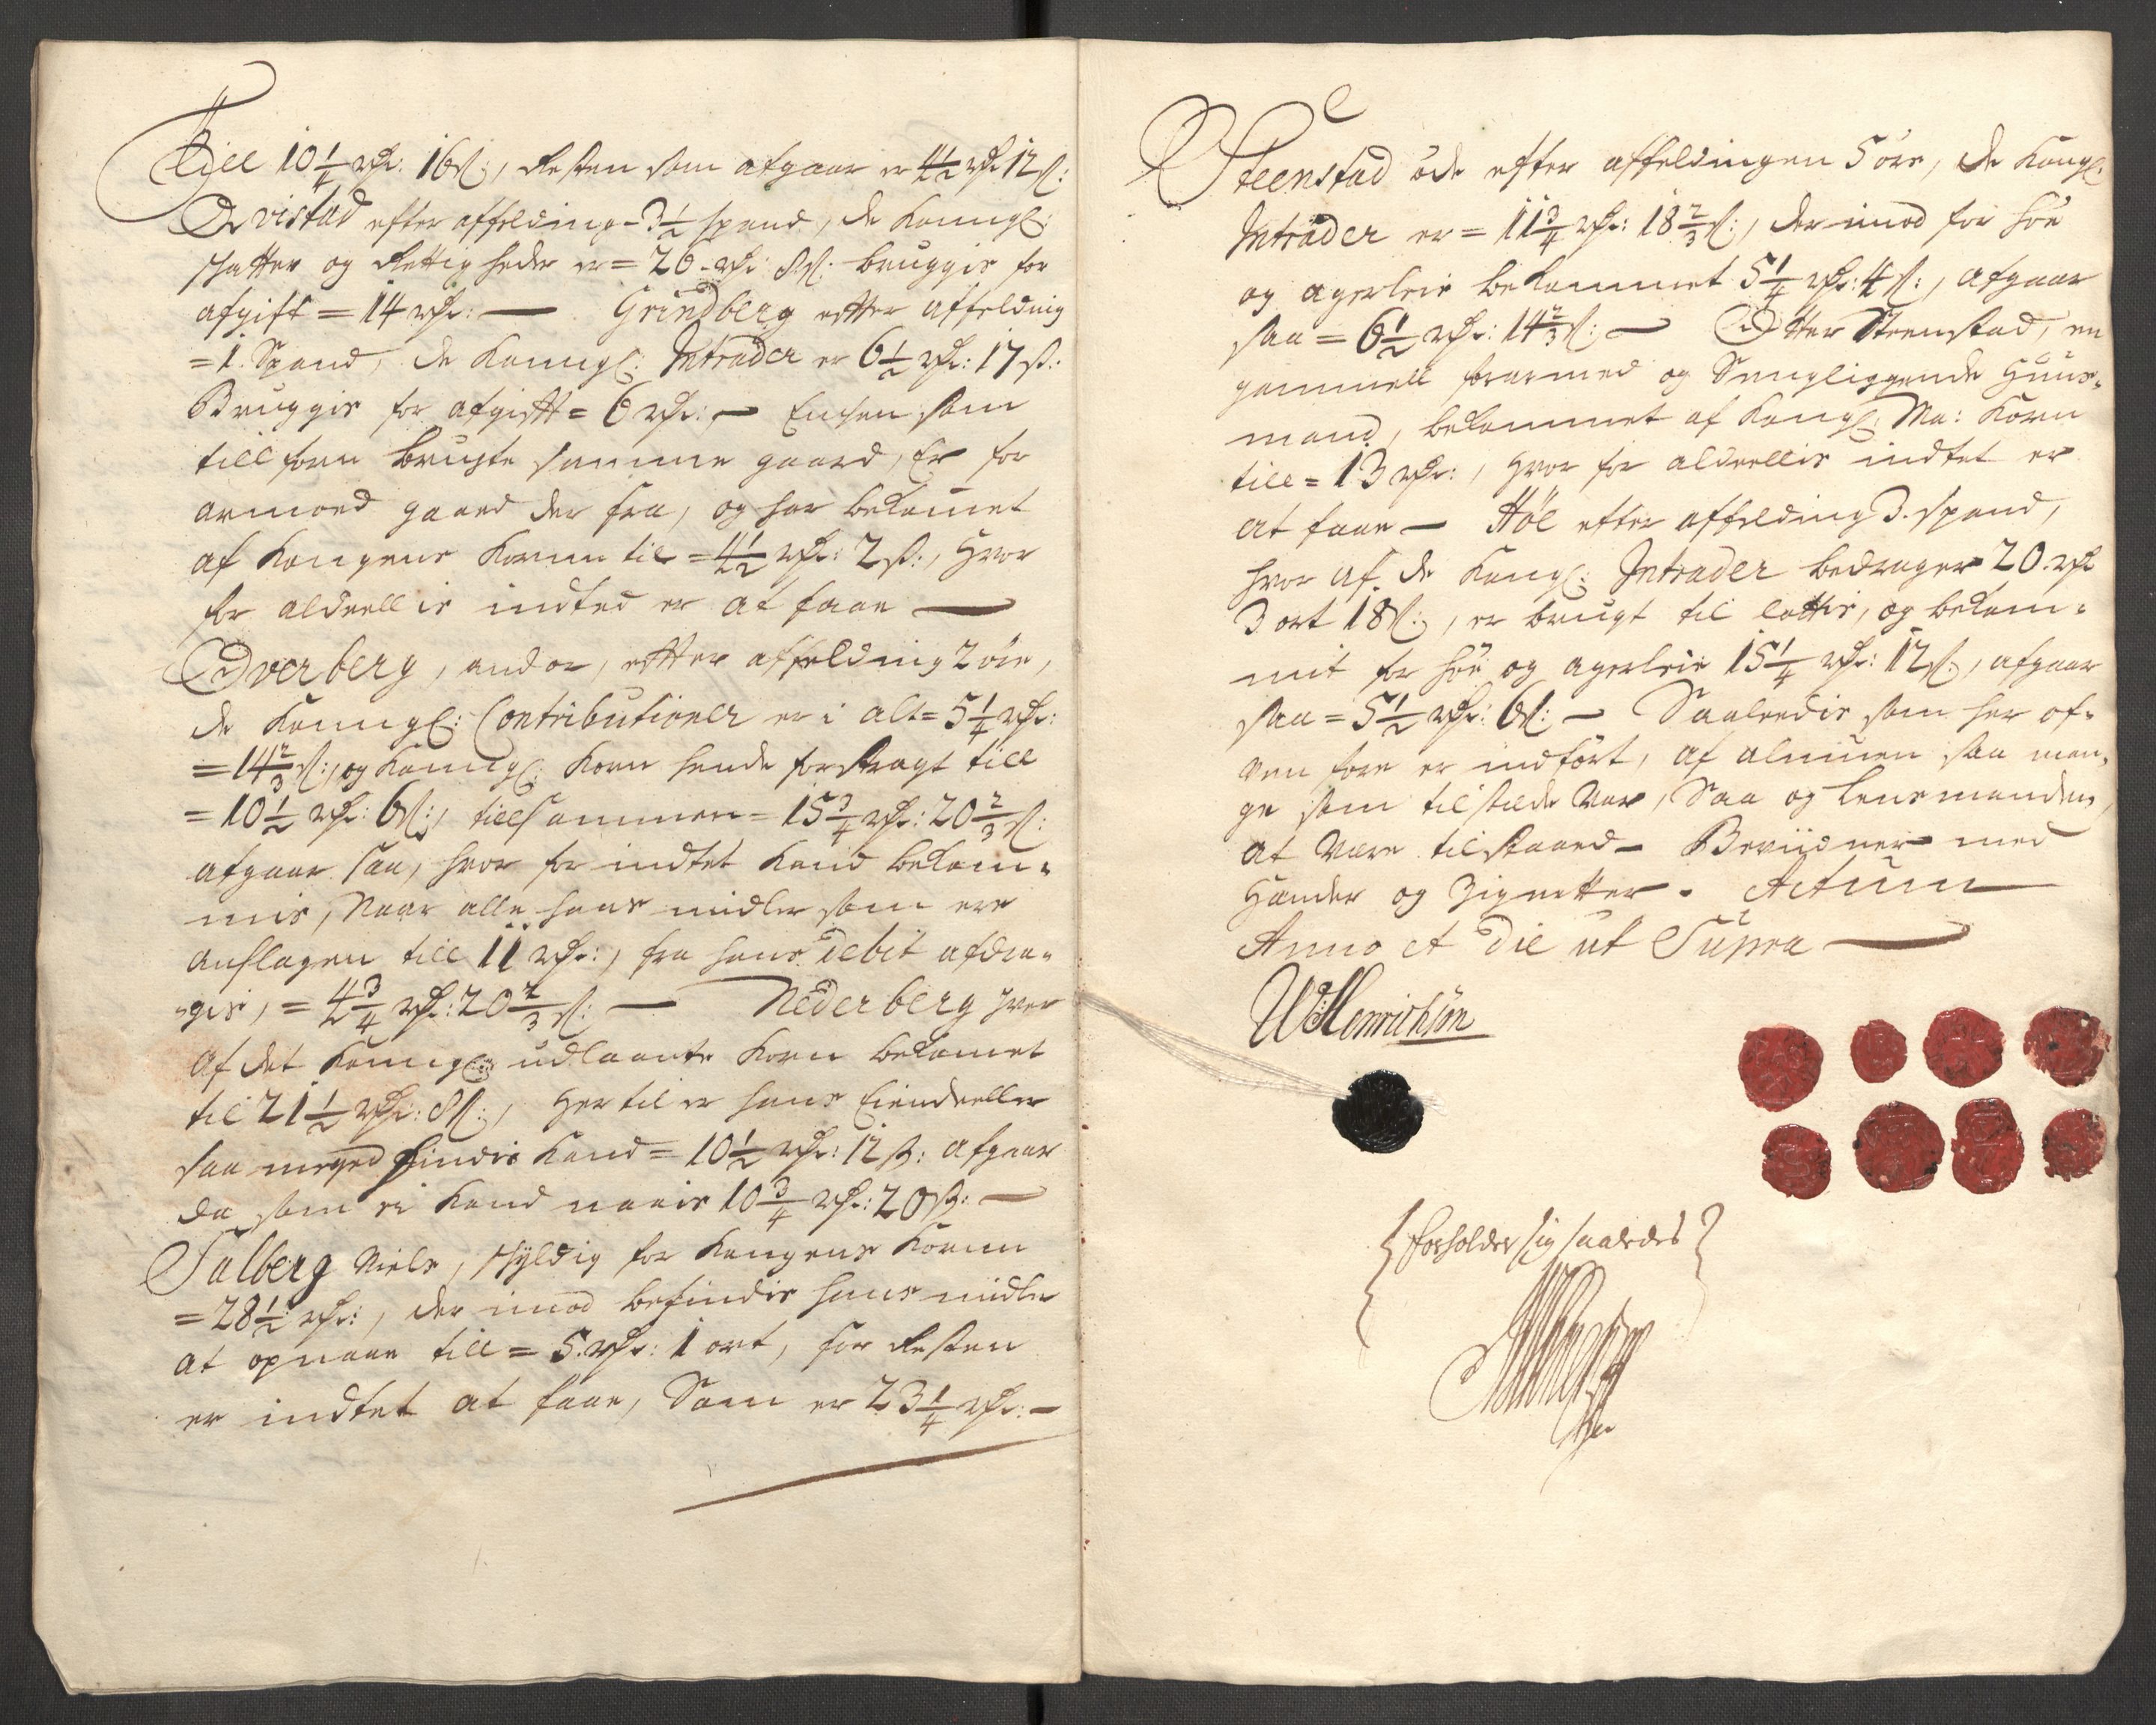 Till 10 1/4 rdr: 16 ß:, Resten som afgaar er 4 1/2 rdr 12 ß:
Qvistad efter affelding = 3 1/2 spand, de Kongl:
schatter og Rettigheder er = 26 rdr: 8 ß: bruggis for
afgift = 14 rdr: — Grindberg effter affelding
= 1. Spand, de Kongl: Intrader er 6 1/2 rdr: 17 ß:
Bruggis for afgifft = 6 rdr: — som
till forn brugte samme gaard, Er for
armoed gaaed der fra, og har bekommet
af Kongens Kornn til = 4 1/2 rdr: 2 ß:, hvor
for aldeellis indted er at faae —
Overberg, andor, effter affelding 2 øre,
de Kongl: Contributioner er i alt = 5 1/4 rdr:
= 14 2/3 ß:, og Kongl: Korn hende forstragt till
= 10 1/2 rdr: 6 ß:, tillsammen = 15 3/4 rdr: 20 2/3 ß:
afgaar saa, hvor for indtet kand bekom-
mis, Naar alle hans midler som ere
anslagen till 11 rdr:, fra hans debit afdra-
gis, = 4 3/4 rdr: 20 2/3 ß: — Nederberg hver
af det Kongl: udlaante Korn bekomet
til 21 1/2 rdr: 8 ß:, her til er hans Eiendeeller
saa meged findis kand = 10 1/2 rdr: 12 ß: afgaar
da som ei kand naais 10 3/4 rdr: 20 ß: —
Salberg Niels, schyldig for Kongens Kornn
= 28 1/2 rdr:, der imod befindis hans midler
at opnaae till = 5. rdr: 1 ort, for Resten
er indtet at faae, Som er 23 1/4 rdr: —
Steenstad øde efter affeldingen 5 øre, de Kongl:
Intrader er = 11 3/4 rdr: 18 2/3 ß:, der imod for høe
og agerleie bekommet 5 1/4 rdr: 4 ß:, afgaar
saa = 6 1/2 rdr: 14 2/3 ß: — Otter Steenstad, en
gammell forarmed og Sengliggende Huus-
mand, bekommet af Kongl: Ma: Korn
till = 13 rdr:, hvor for aldeellis indtet er
at faae — Høl efter affelding 3. spand,
hvor af de Kongl: Intrader bedrager 20. rdr
3 ort 18 ß:, er brugt til lottis, og bekom-
mit for høe og agerleie 15 1/4 rdr: 12 ß:, afgaar
saa = 5 1/2 rdr: 6 ß: — Saaleedis som her of-
ven fore er indført, af almuen saa man-
ge som tilstæde var, Saa og Lensmanden,
at være tilstaaed — Beviidner med
Hænder og Zignetter. Actum
Anno et Die ut Supra —
W Henrichsøn
forholder sig saaledes